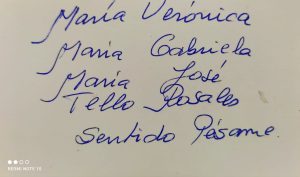 María Verónica
María Gabriela
María José
Tello Rosales
Sentido Pésame.
REDMI NOTE 10